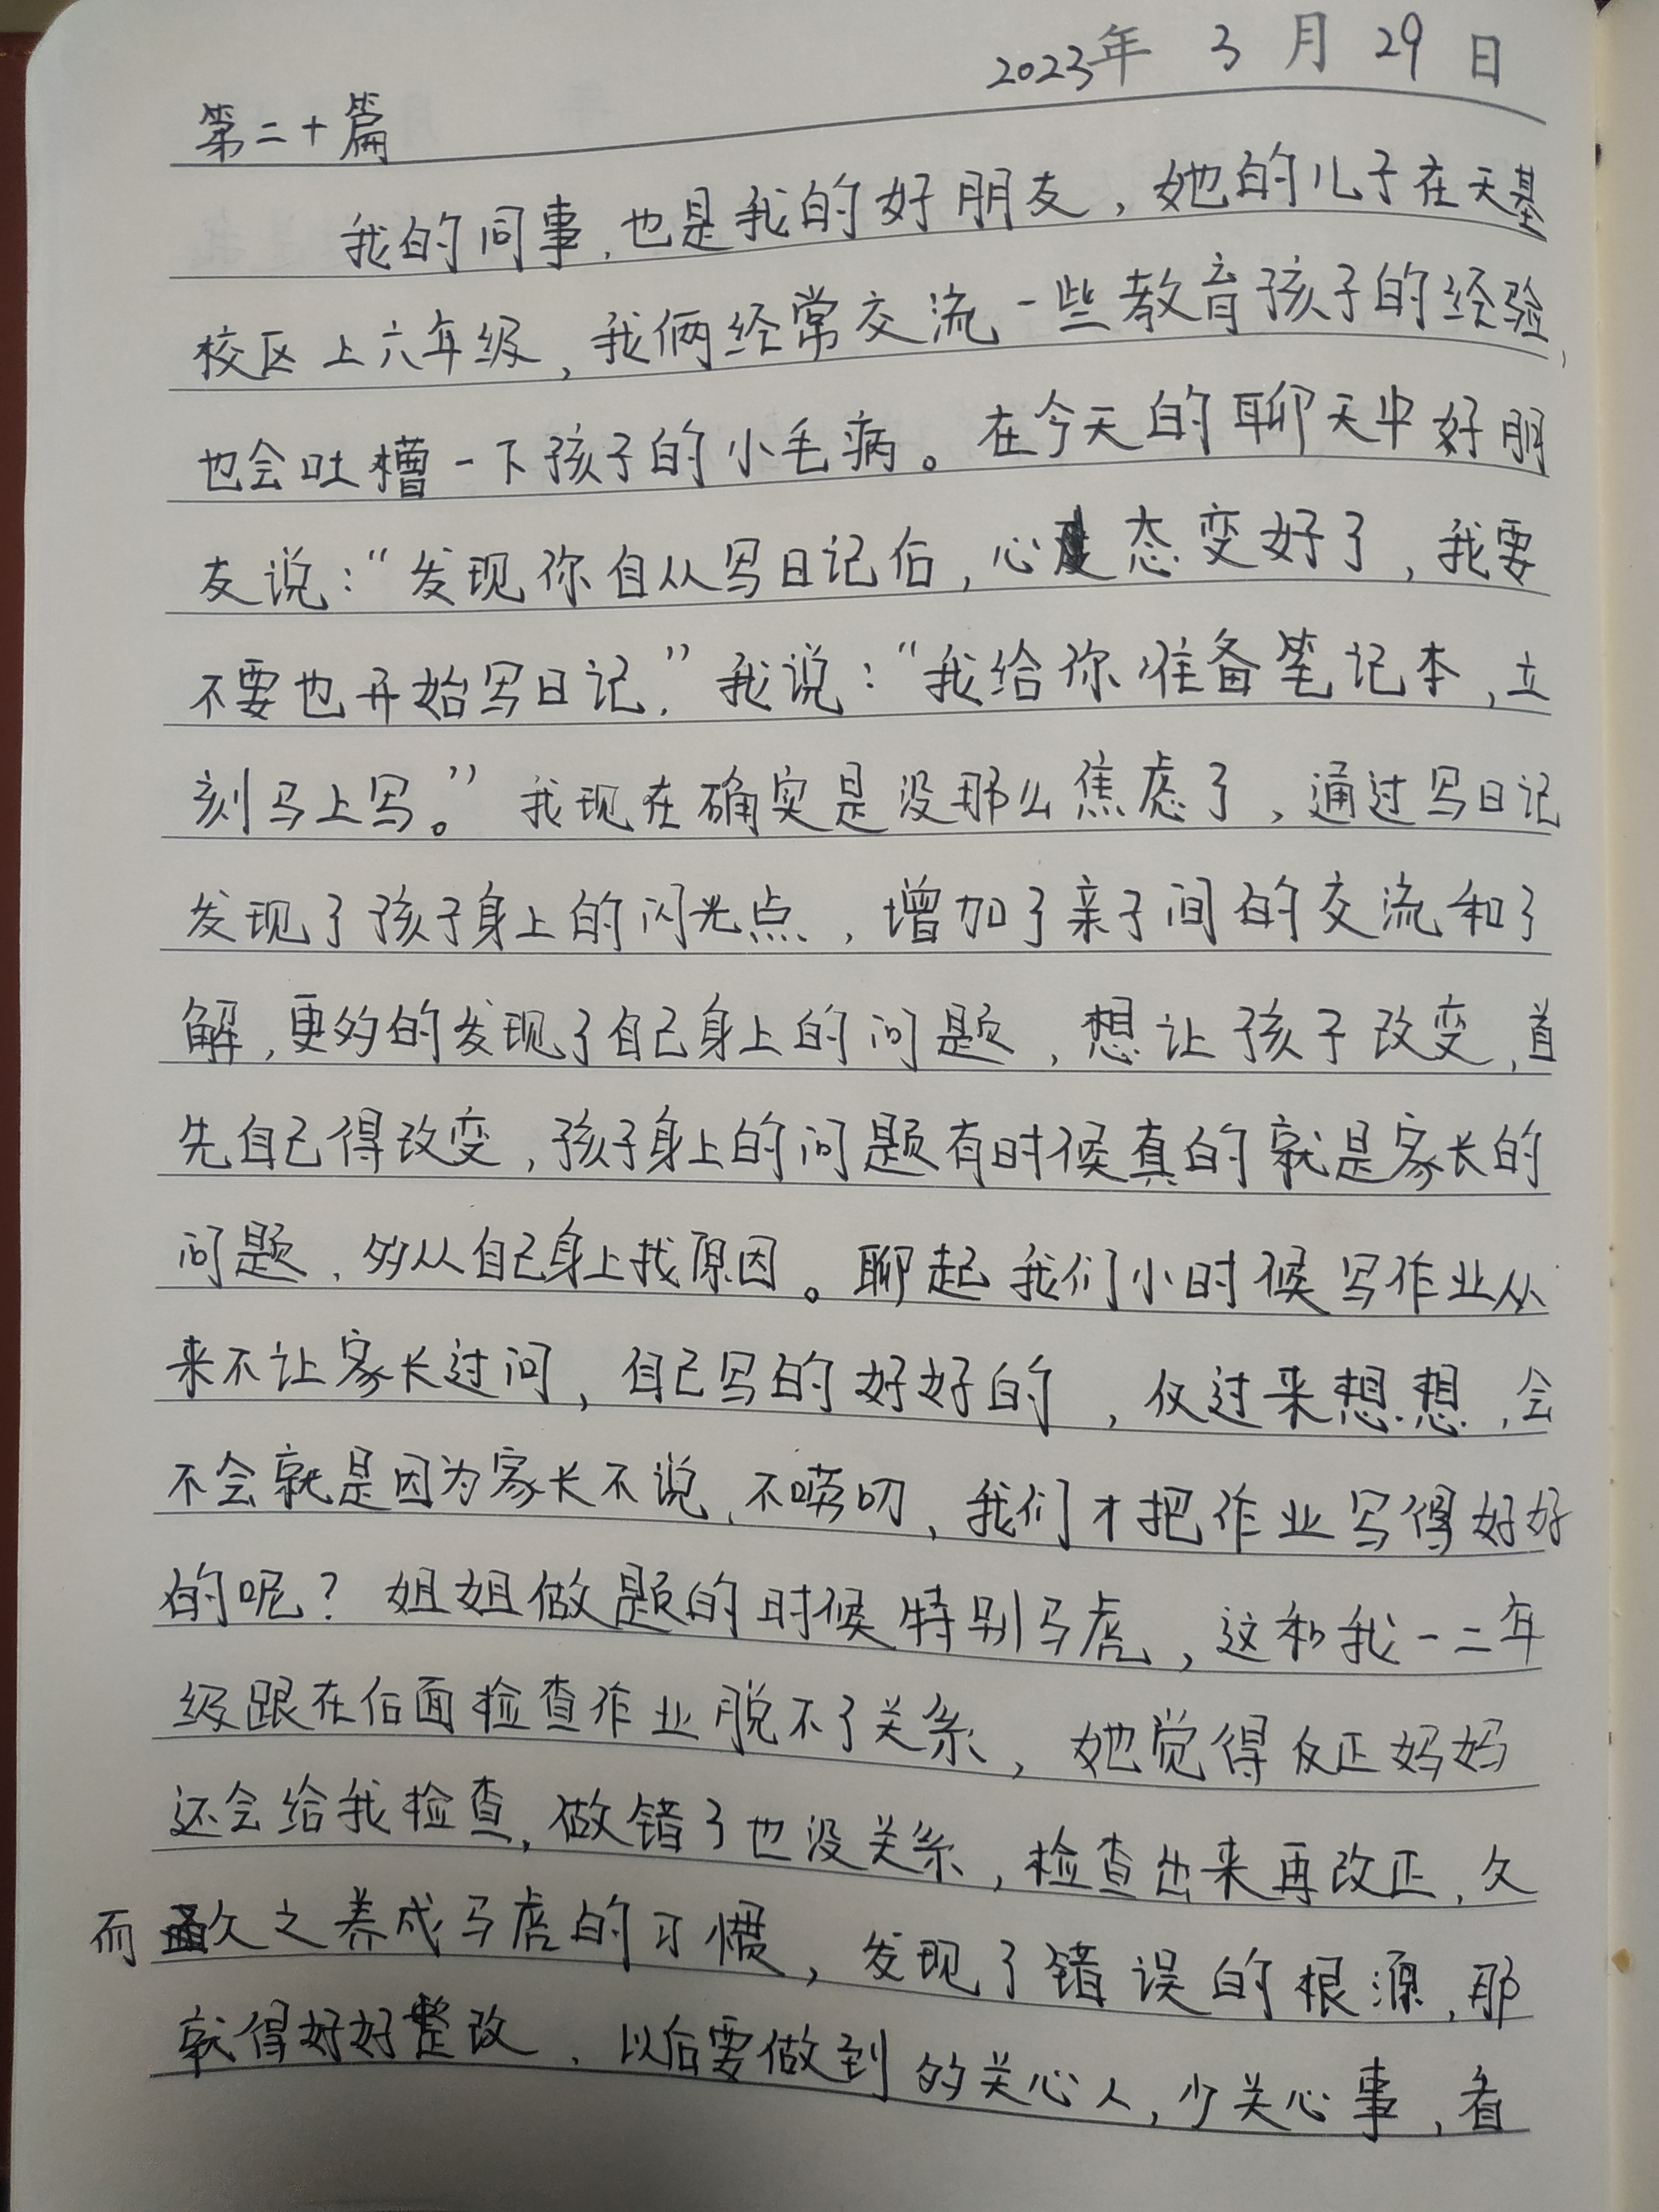 2023年 3 月 29 日
第二十篇
我的同事,也是我的好朋友,她的儿子在天基
校区上六年级,我俩经常交流一些教育孩子的经验,
也会吐槽一下孩子的小毛病。在今天的聊天中好朋
友说:“发现你自从写日记后,心态变好了,我要
不要也开始写日记,”我说:“我给你准备笔记本,立
刻马上写。”我现在确实是没那么焦虑了,通过写日记
发现了孩子身上的闪光点,增加了亲子间的交流和了
解,更多的发现了自己身上的问题,想让孩子改变,首
先自己得改变,孩子身上的问题有时候真的就是家长的
问题,多从自己身上找原因。聊起我们小时候写作业从
来不让家长过问,自己写的好好的,仅过来想想,会
不会就是因为家长不说,不唠叨,我们才把作业写得好好
的呢?姐姐做题的时候特别马虎,这和我一二年
级跟在后面检查作业脱不了关系,她觉得反正妈妈
还会给我检查,做错了也没关系,检查出来再改正,久
而久之养成马虎的习惯,发现了错误的根源,那
就得好好整改,以后要做到多关心人,少关心事,看